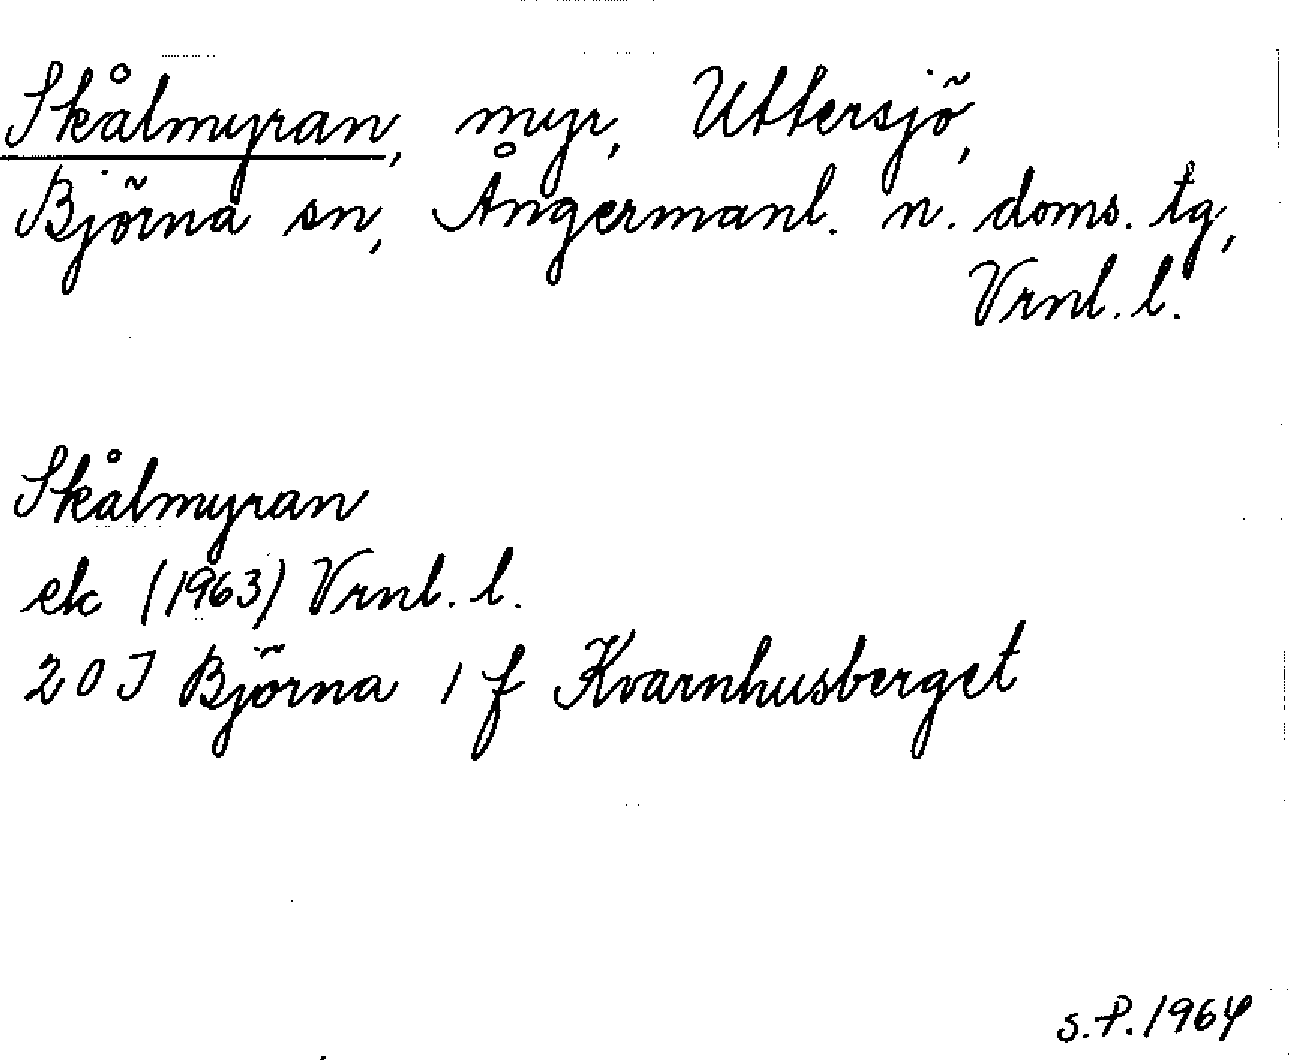 Skålmyran, myr, Uttersjö,
Björna sn, Ångermanl. n. doms. tg,
Vrnl. l.
Skålmyran
ek (1963) Vrnl. l.
20 J Björna 1 f Kvarnhusberget
S.P. 1964